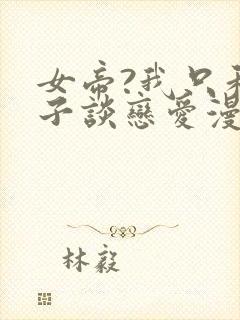 女帝?我只和
子談戀愛漫
林毅